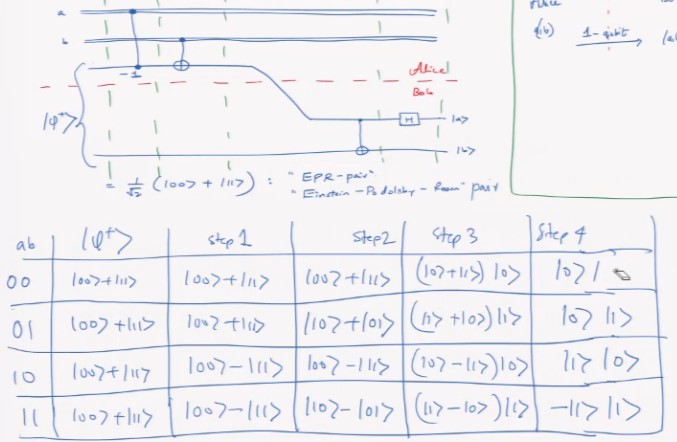 a
b
(ab)
1-qubit
-1
Alice
Bob
|φ⁺>
H
|a>
|b>
= 1/√2 (|00> + |11>) : "EPR-pair"
"Einstein-Podolsky-Rosen" pair
ab |φ⁺> Step 1 Step2 Step 3 Step 4
00 |00>+|11> |00>+|11> |00>+|11> (|0>+|1>)|0> |0> |
01 |00>+|11> |00>+|11> |10>+|01> (|1>+|0>)|1> |0> |1>
10 |00>+|11> |00>-|11> |00>-|11> (|0>-|1>)|0> |1> |0>
11 |00>+|11> |00>-|11> |10>-|01> (|1>-|0>)|1> -|1> |1>